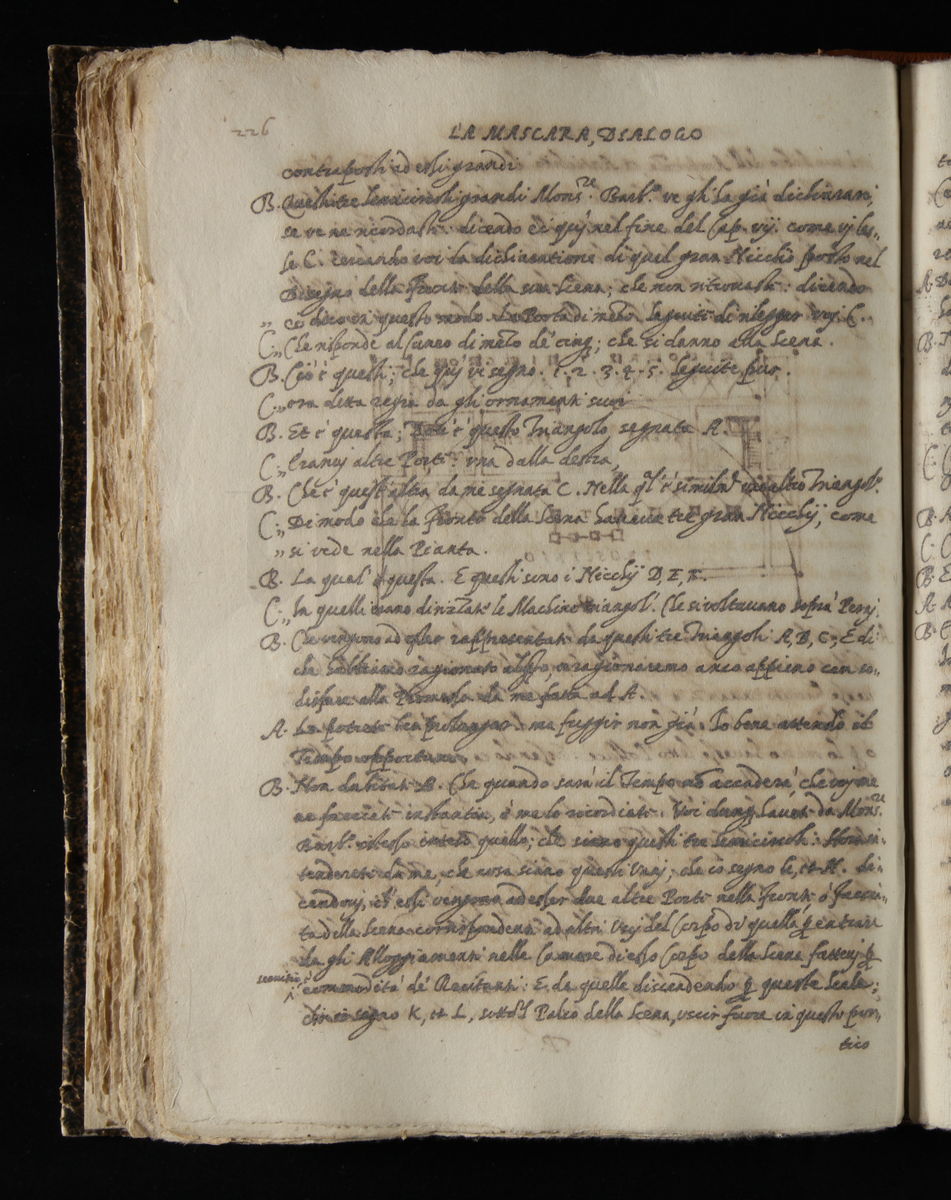 226
LA MASCARA, DIALOGO
contraposti ad essi grandi
B. Questi tre semicircoli grandi Mons.re Barb.o ve gli ha già dichiarati,
se ve ne ricordasti: dicendo ei quì nel fine del Cap. vij. come vi les-
se C. cercando voi la dichiaratione di quel gran Nicchio posto nel
Disegno della Fronte della sua Scena; che non ritrovasti: dicendo
" ei dico in questo modo. La Porta di mezo. seguite di rilegger voi C.
C. " Che risponde al Cuneo di mezo de' cinq; che si danno alla Scena.
B. Ciò è questi; che quì vi segno. 1. 2. 3. 4. 5. Seguite pur.
C. " era detta regia da gli ornamenti suoi
B. Et è questa; è questo Triangolo segnato A.
C. " Eranvi altre Porti: una dalla destra,
B. Che è quest'altra da me segnata C. Nella è Triangol.
C. " Di modo che la Fronte della Scena haveva tre gran Nicchij, come
" si vede nella Pianta.
B. La qual' è questa. E questi sono i Nicchij D, E, F.
C. " In quelli erano dirizzate le Machine triangol. Che si voltavano sopra Perni
B. Che vengono ad esser rappresentati da questi tre Triangoli A, B, C; E di
che habbiamo ragionato ragionaremo anco appieno con so-
disfare alla Promessa da me fatta ad A.
A. La potrete ben prolungar ma fuggir non già. Io bene attendo il
Tempo opportuno.
B. Non dubitate A. Che quando sarà il Tempo nõ accaderà che voi me
ne facciate instantia, ò me lo ricordiate. Voi dunq; havete da Mons.re
Barb.o inteso quello; che siano questi tre semicircoli:
tenderete da me, che cosa siano questi Vani; che io segno G, et H. di-
cendovi, ch' essi vengono ad esser due altre Porti nella Fronte ò faccia-
ta della Scena corrispondenti ad altri Vsij del Corpo di quella entrar
da gli Alloggiamenti nelle Camere di esso Corpo della Scena fattevi p
uenivi
commodità de' Recitanti: E da quelle discendendo p queste scale;
che io segno K, et L, sotto'l Palco della Scena, uscir fuora in questo por-
tico